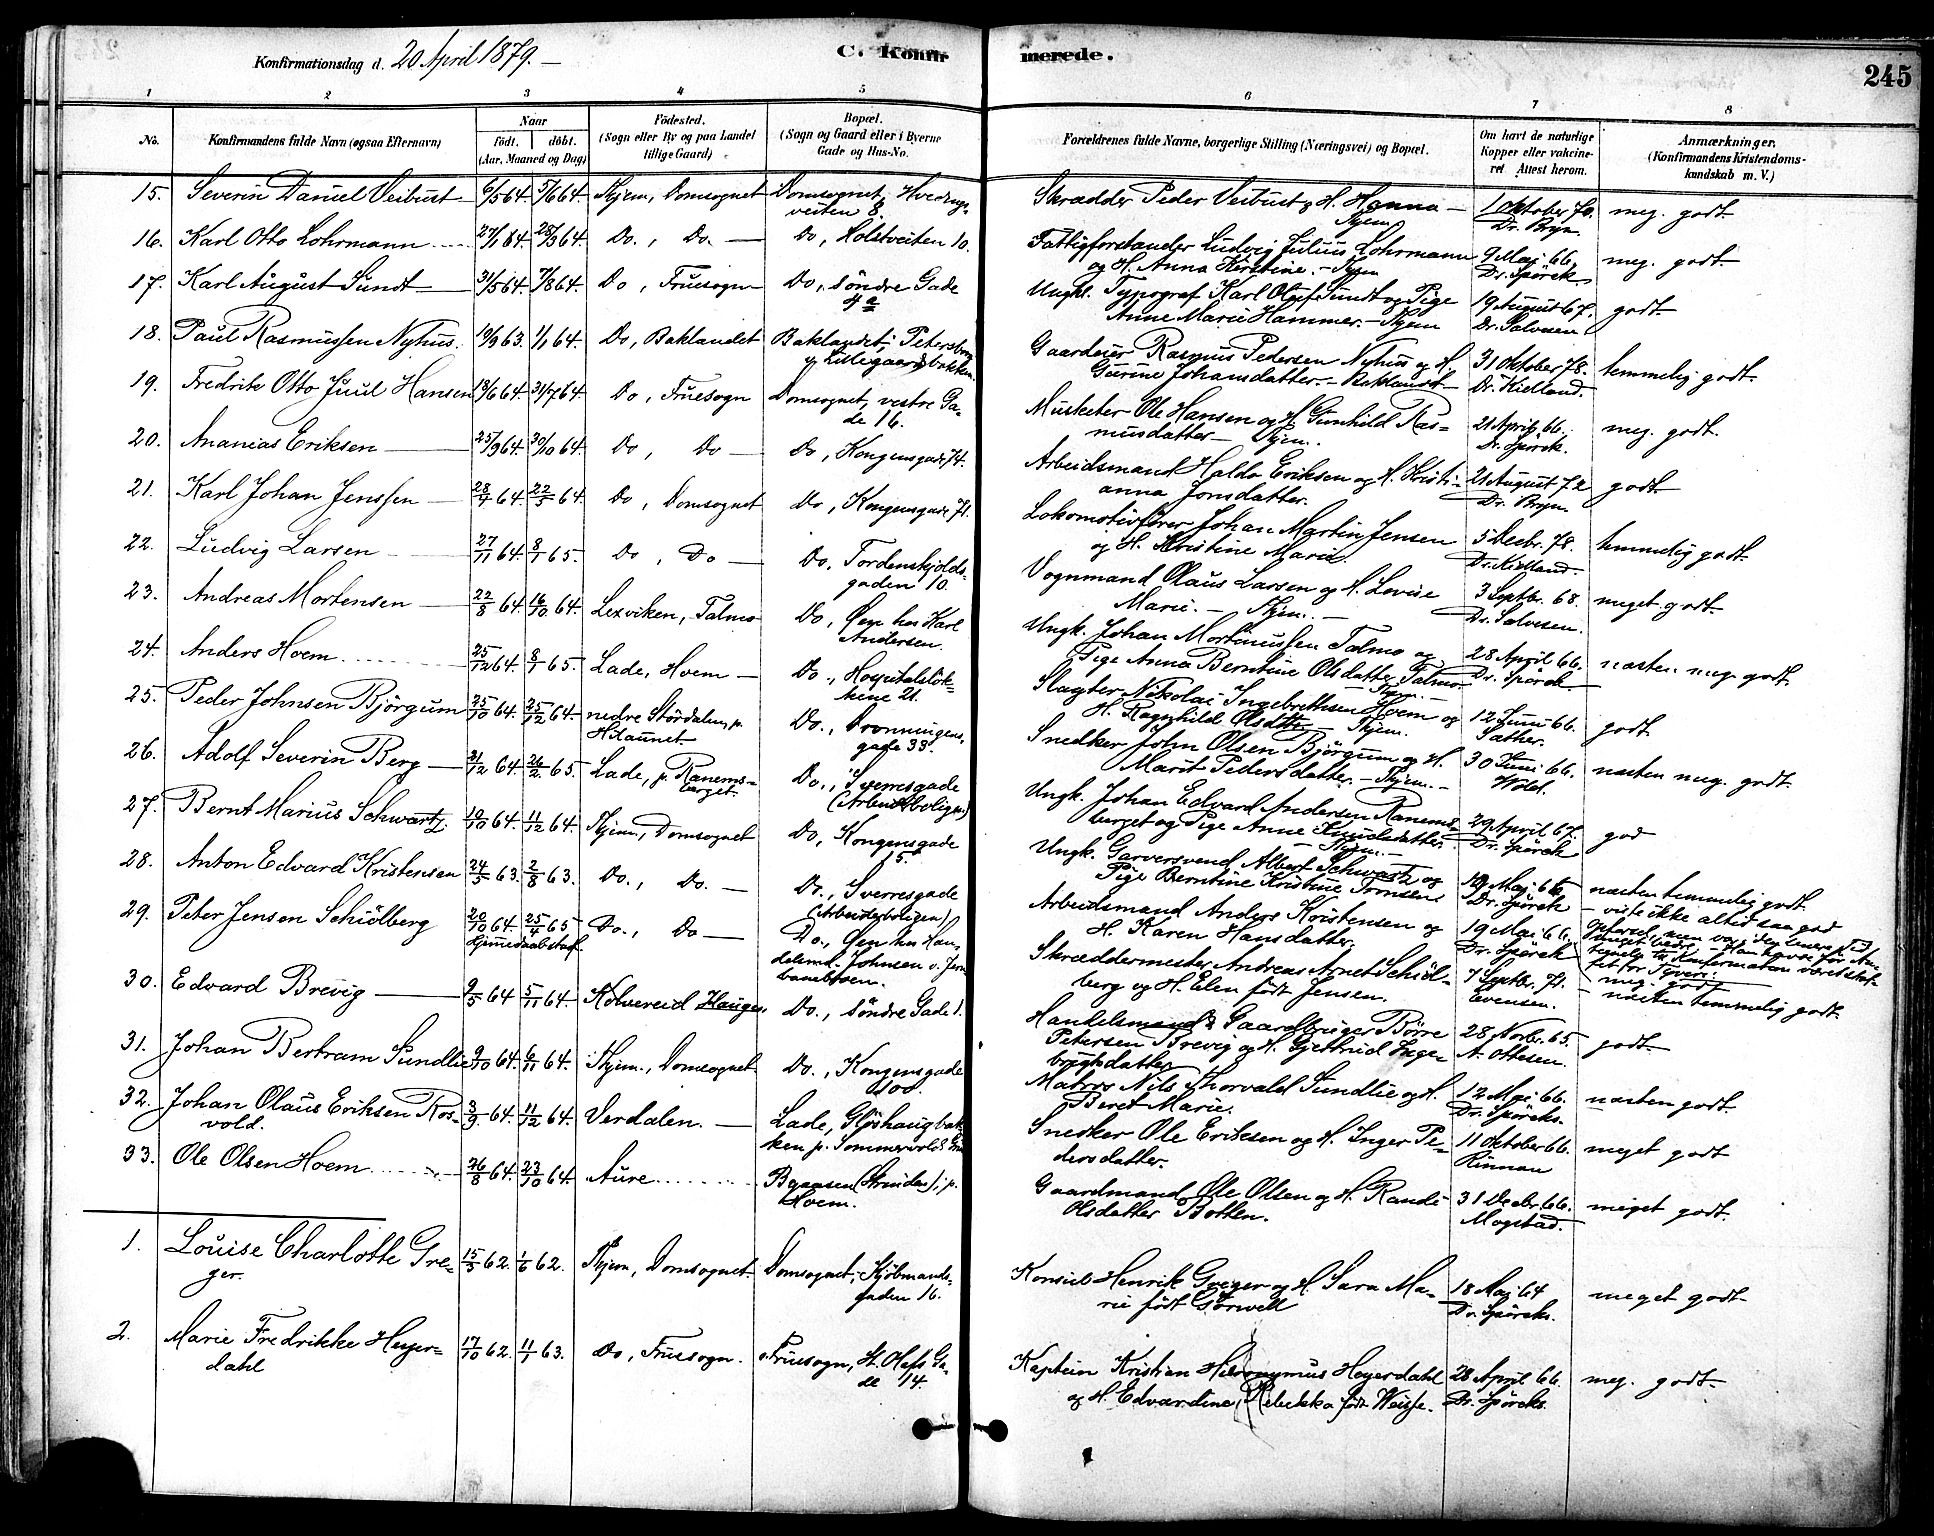 Konfirmationsdag d. 20 April 1879.
C. Konfirmerede.
245
1 2 3 4 5 6 7 8
No.
Konfirmandens fulde Navn (ogsaa Efternavn)
Naar
födt. döbt.
(Aar, Maaned og Dag)
Födested.
(Sogn eller By og paa Landet
tillige Gaard)
Bopæl.
(Sogn og Gaard eller i Byerne
Gade og Hus-No.
Forældrenes fulde Navne, borgerlige Stilling (Næringsvei) og Bopæl.
Om havt de naturlige
Kopper eller vakcine-
ret Attest herom.
Anmærkninger.
(Konfirmandens Kristendoms-
kundskab m. V.)
15. Severin Daniel Veibust 6/5 64. 5/6 64. Thjem, Domsognet Domsognet, Hvedings-
veiten 8.
Skrædder Peder Veibust og H. Hanna
Thjem
1 Oktober 70.
Dr. Bryn
meg. godt.
16. Karl Otto Lohrmann 27/1 64. 28/3 64. Do., Do. Do, Holstveiten 10.
Fattigforstander Ludvig Julius Lohrmann
og H. Anna Kirstine. - Thjem
9 Mai 66.
Dr. Spörck
meg. godt.
17. Karl August Sundt 31/5 64. 7/8 64. Do, Fruesogn Do, söndre Gade
4 a
Ungk. Typograf Karl Oluf Sundt og Pige
Anne Marie Hammer. - Thjem
19 August 67.
Dr. Salvesen
godt.
18. Paul Rasmussen Nyhus. 19/9 63. 1/1 64. Do, Baklandet Baklandet, Petersborg
v. Lillegaardsbakken.
Gaardeier Rasmus Pedersen Nyhus og H.
Gurine Johansdatter. - Baklandet
31 Oktober 78.
Dr. Kielland.
temmelig godt.
19. Fredrik Otto Juul Hansen 13/6 64. 31/7 64. Do, Fruesogn Domsognet, vestre Ga-
de 16.
Musketer Ole Hansen og H. Gunhild Ras-
musdatter - Thjem.
21 April 66.
Dr. Spörck.
meg. godt.
20. Ananias Eriksen 25/9 64. 30/10 64. Do, Do Do, Kongensgade 74.
Arbeidsmand Haldo Eriksen og H. Kristi-
anna Jonsdatter.
21 August 72
Dr. Bryn.
godt.
21. Karl Johan Jenssen 28/4 64. 22/5 64. Do, Domsognet Do, Kongensgade 71.
Lokomotivförer Johan Martin Jensen
og H. Kristine Marie.
5 Decbr. 78.
Dr. Kielland.
temmelig godt.
22. Ludvig Larsen 27/11 64. 8/1 65. Do, Do Do, Tordenskjolds-
gaden 10.
Vognmand Olaus Larsen og H. Lovise
Marie. - Thjem.
3 Septbr. 68.
Dr. Salvesen.
meget godt.
23. Andreas Mortensen 22/8 64. 16/10 64. Lexviken, Talmo Do, Öen hos Karl
Andersen.
Ungk. Johan Mortinussen Talmo og
Pige Anna Berntine Olsdatter Talmo.
Thjem
28 April 66.
Dr. Spörck
næsten meg. godt.
24. Anders Hoem 25/12 64. 8/1 65. Lade, Hoem Do, Hospitalslök-
kene 21.
Slagter Nikolai Ingebrethsen Hoem og
H. Ragnhild Olsdttr. - Thjem.
12 Juni 66.
Sæther.
godt
25. Peder Johnsen Björgum 25/10 64. 25/12 64. nedre Stördalen, p.
Hilaunet.
Do., Dronningens-
gade 38.
Snedker John Olsen Björgum og H.
Marit Pedersdatter. - Thjem.
30 Juni 66.
Wold.
næsten meg. godt.
26. Adolf Severin Berg 31/12 64. 26/2 65. Lade, p. Ranems-
berget.
Do., Sverresgade
(Arbeiderboligen)
Ungk. Johan Edvard Andersen Ranems-
berget og Pige Anne Knudsdatter.
Thjem.
29 April 67.
Dr. Spörck
god
27. Bernt Marius Schwartz. 10/10 64. 11/12 64. Thjem, Domsognet Do, Kongensgade
15.
Ungk. Garversvend Albert Schwartz og
Pige Berntine Kristine Tomsen.
19 Mai 66
Dr. Spörck
næsten temmelig godt.
28. Anton Edvard Kristensen 24/5 63. 2/8 63. Do., Do. Do., Sverresgade
(Arbeiderboligen)
Arbeidsmand Anders Kristensen og
H. Karen Hansdatter.
19 Mai 66.
Dr. Spörck
- viste ikke altid saa god
Opförsel, men var i den senere Tid
meget bedre. -
29. Peter Jenson Schiölberg 20/10 64. 25/4 65 Do., Do
Hjemmedaabstadf.
Do., Öen hos Han-
delsmd. Johnsen v. Jern-
banebroen.
Skræddermester Andreas Arnet Schiöl-
berg og H. Elen födt Jensen.
7 Septbr. 71.
Evensen.
meg. godt
30. Edvard Brevig 9/5 64 5/11 64. Kolvereid Hauger. Do., söndre Gade 1.
Handelsmand & Gaardbruger Börre
Petersen Brevig og H. Gjertrud Inge-
brigtsdatter
28 Novbr. 65.
A. Ottesen.
godt.
- næsten temmelig godt.
31. Johan Bertram Sundlie 9/10 64. 6/11 64. Thjem., Domsognet Do., Kongensgade
100.
Matros Nils Thorvald Sundlie og H.
Beret Marie.
12 Mai 66.
Dr. Spörck.
næsten godt.
32. Johan Olaus Eriksen Ros-
vold.
3/9 64. 11/12 64. Verdalen. Lade, Glöshaugbak-
ken p. Sommervolds
Snedker Ole Eriksen og H. Inger Pe-
dersdatter.
11 Oktober 66.
Rinnan
meget godt
33. Ole Olsen Hoem 26/8 64. 23/10 64. Aure (Strinden), p.
Hoem.
Gaardmand Ole Olsen og H. Randi
Olsdatter Botten.
31 Decbr. 66.
Mogstad.
meget godt.
1. Louise Charlotte Gre-
ger.
15/3 62. 1/6 62. Thjem, Domsognet. Domsognet, Kjöbmands-
gaden 16.
Konsul Henrik Greger og H. Sara Ma-
rie födt Görwell
18 Mai 64
Dr. Spörck.
meget godt.
2. Marie Fredrikke Heyer-
dahl
17/10 62. 11/1 63. Do, Fruesogn. Fruesogn, St. Olafs Ga-
de 14.
Kaptein Kristian Hieronymus Heyerdahl
og H. Edvardine Rebekka födt Weisse.
28 April 66.
Dr. Spörck.
meg. godt.